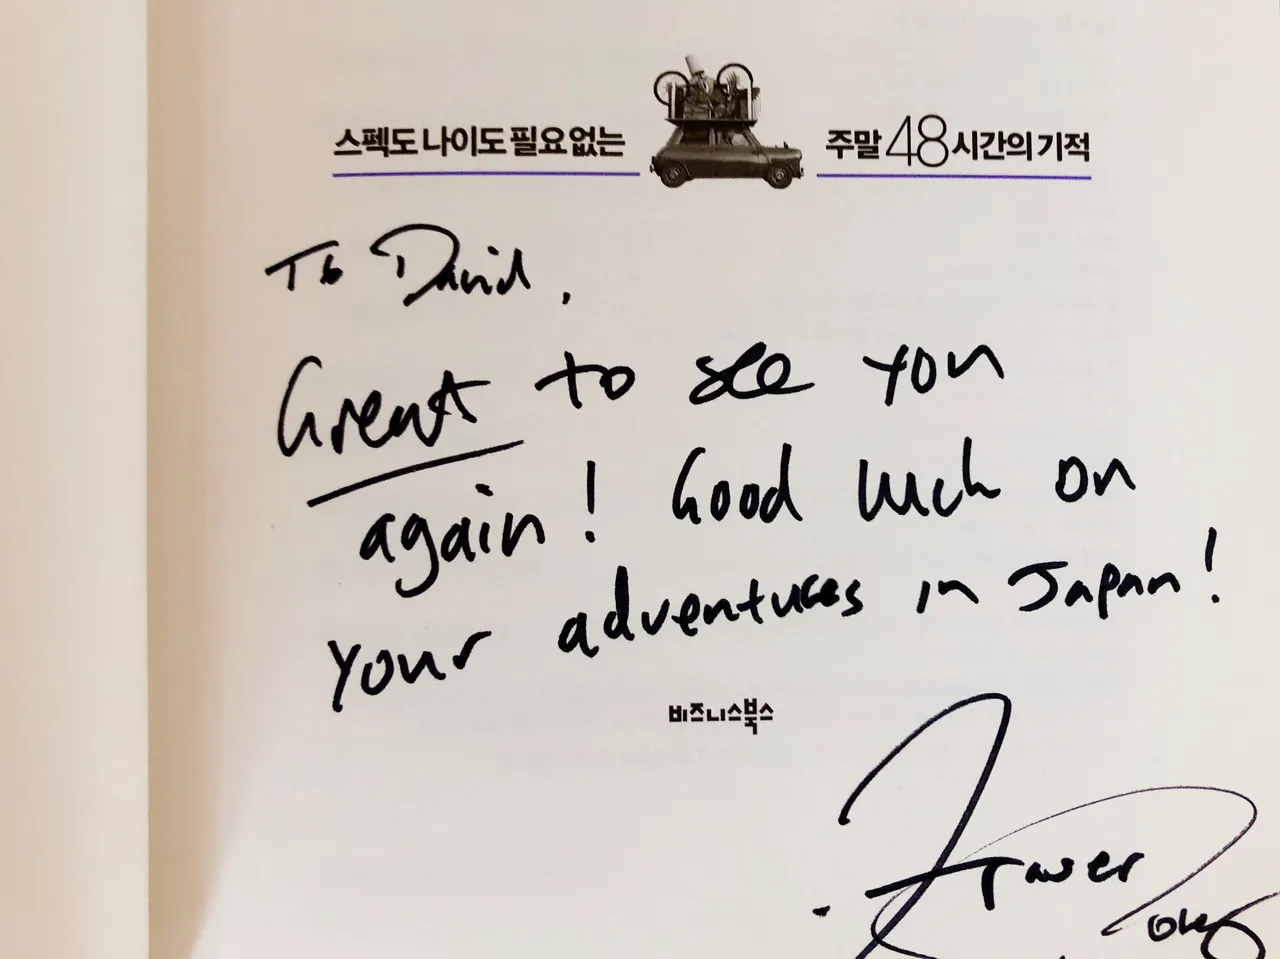 스펙도 나이도 필요 없는 주말 48시간의 기적
To David,
Great to see you
again! Good luck on
your adventures in Japan!
비즈니스북스